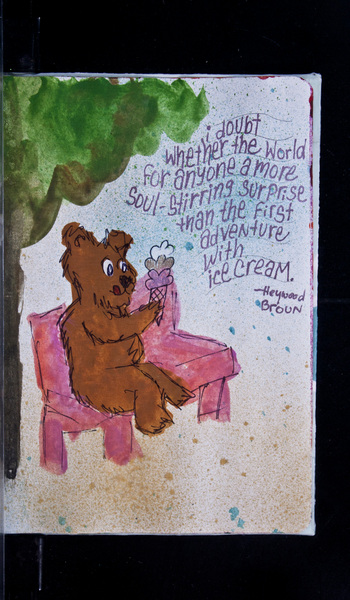 i doubt
whether the world
for anyone a more
soul-stirring surprise
than the first
adventure
with
ice cream.
—Heywood
Broun